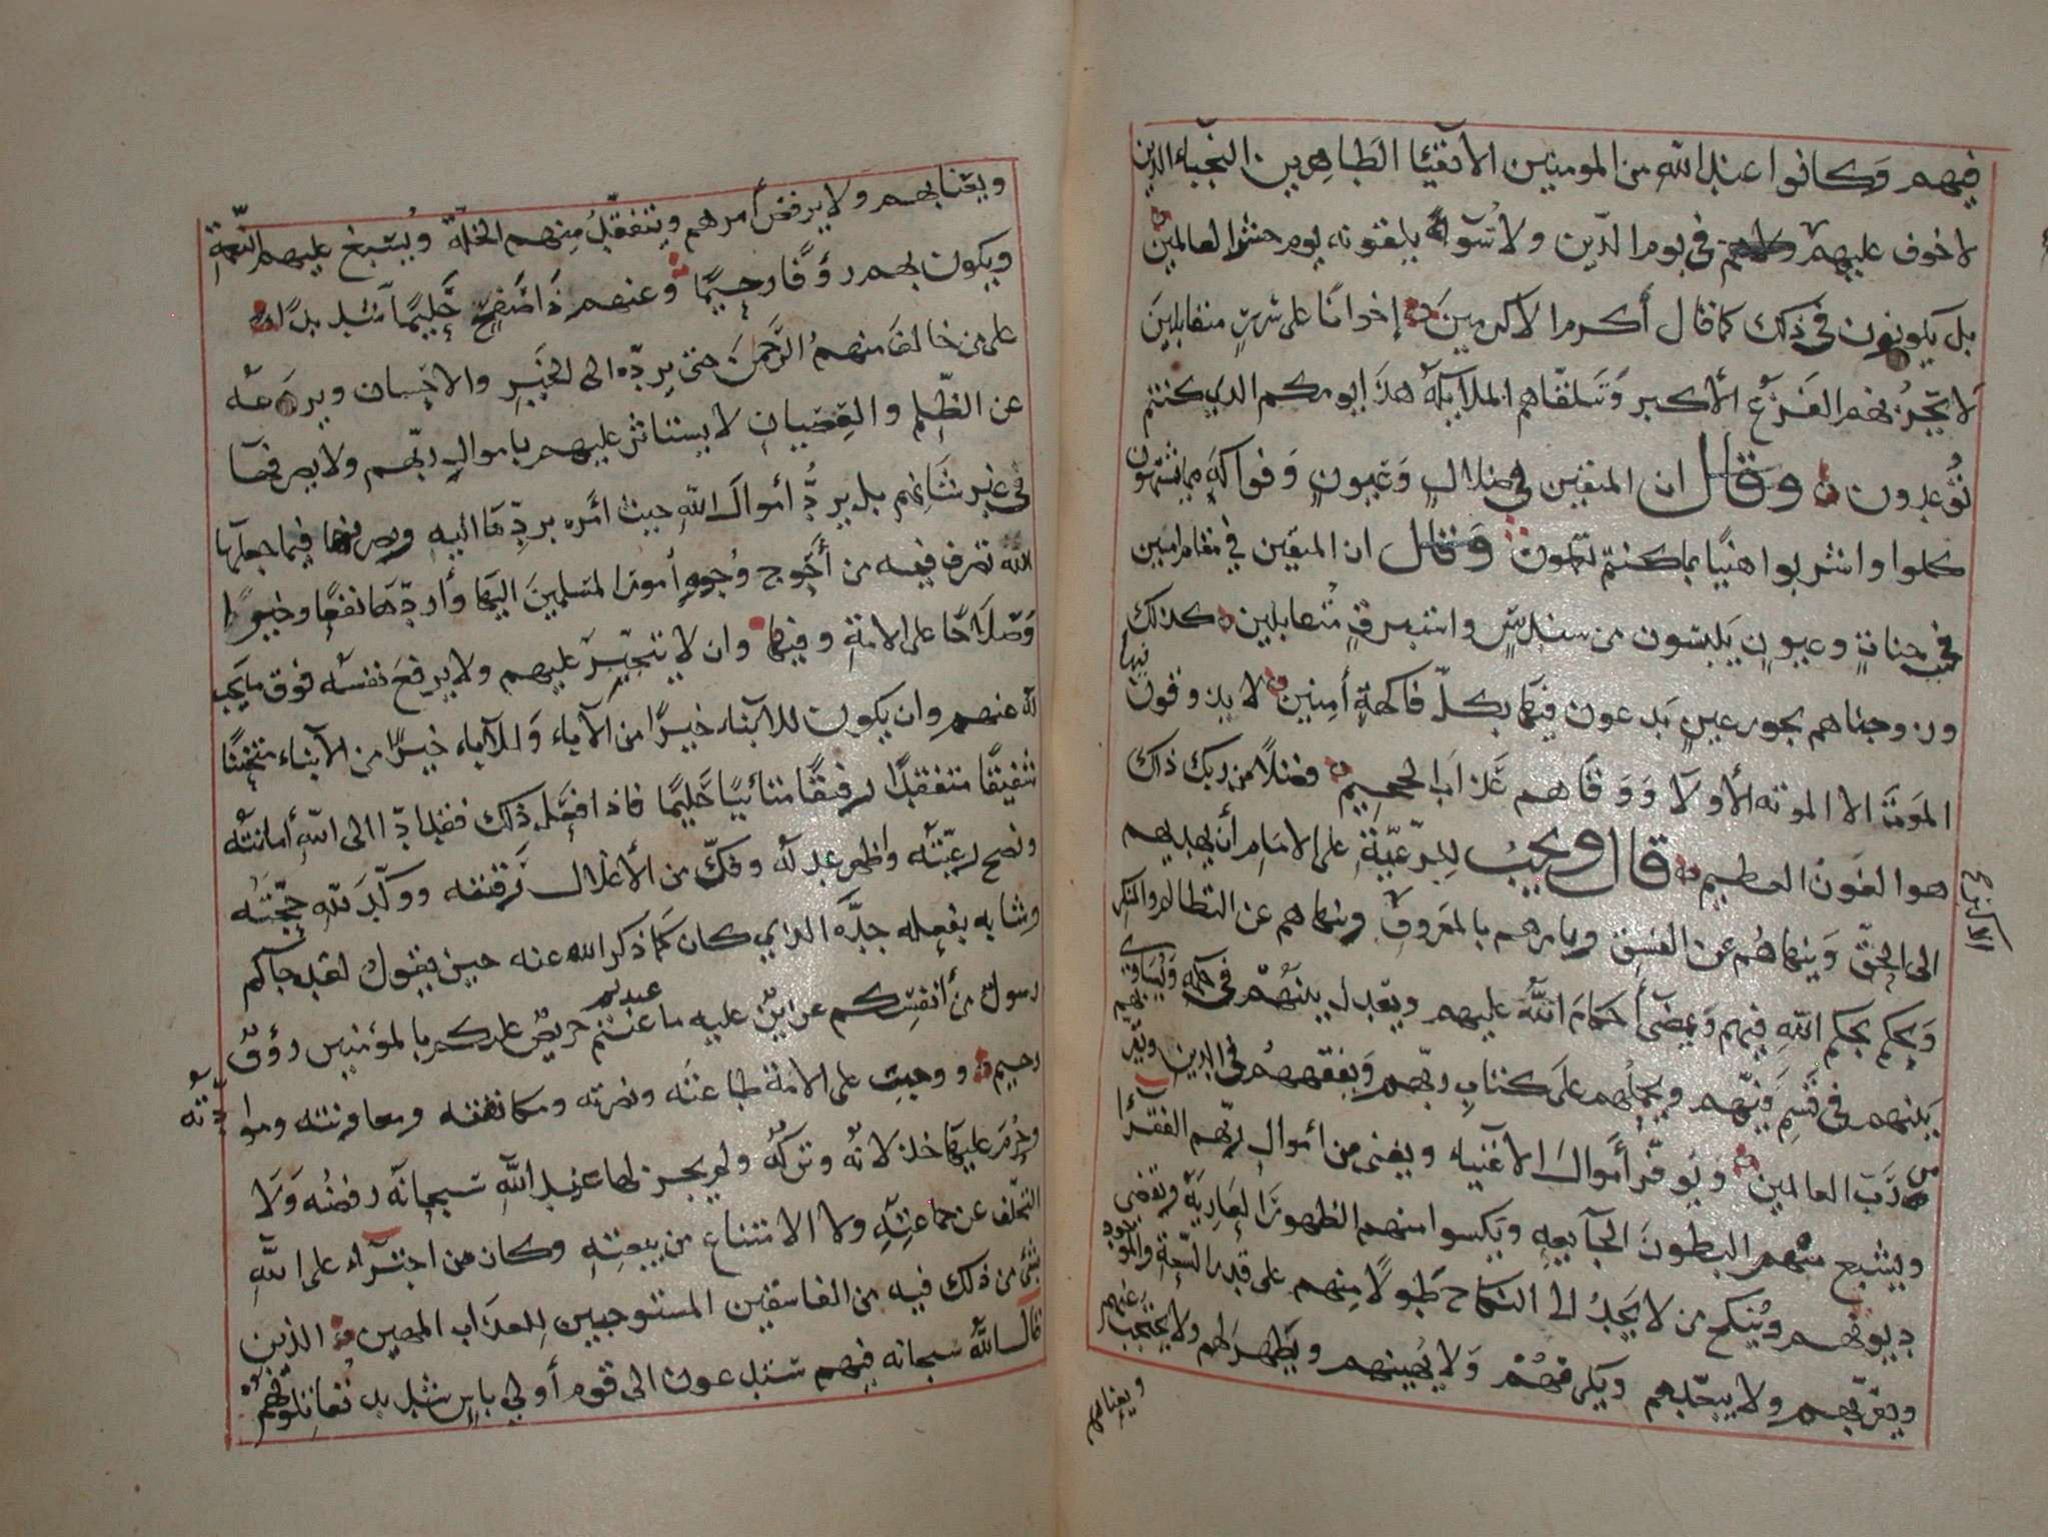 فيهم وكانوا عند الله من المومنين الاتقيا الطاهرين النجباء الذين
لا خوف عليهم في يوم الدين ولا سوء يلقونه يوم حشر العالمين
بل يكونون في ذلك كما قال أكرم الاكرمين إخوانا على سرر متقابلين
لا يحزنهم الفزع الأكبر وتتلقاهم الملايكة هذا يومكم الذي كنتم
توعدون وقال ان المتقين في ضلال وعيون وفواكه مما يشتهون
كلوا واشربوا هنيا بما كنتم تعملون وقال ان المتقين في مقام امين
في جنات وعيون يلبسون من سندس واستبرق متقابلين كذلك
وزوجناهم بحور عين يدعون فيها بكل فاكهة أمنين لا يذوقون فيها
الموت الا الموته الأولا ووقاهم عذاب الجحيم فضلا من ربك ذلك
هو الفوز العظيم قال ويجب للرعية على الامام أن يهديهم
الى الحق وينهاهم عن الفسق ويامرهم بالمعروف وينهاهم عن التظالم والمنكر
ويحكم بحكم الله فيهم ويمضي أحكام الله عليهم ويعدل بينهم في حكمه ويساوي
بينهم في قسم فيهم ويحملهم على كتاب ربهم ويفقههم في الدين
رب العالمين ويوفر أموال الاغنياء ويغني من اموال ربهم الفقرا
ويشبع منهم البطون الجايعه ويكسوا منهم الظهور العارية ويقضي
ديونهم وينكح من لا يجد الى النكاح طولا منهم على قدر السعة والموجود
ويقربهم ولا يبعدهم ويكرمهم ولا يهينهم ويظهر لهم ولا يحتجب عنهم
ويعنا بهم
ويعنا بهم ولا يرفض أمرهم ويتفقد منهم الخلة ويسبغ عليهم النعمة
ويكون بهم رؤفا رحيما وعنهم ذا صفح حليما شديدا
على من خالف منهم الرحمن حتى يرده الى الخير والاحسان ويردعه
عن الظلم والعصيان لا يستاثر عليهم باموال ربهم ولا يصرفها
في غير شانهم بل يرد أموال الله حيث امره بردها اليه ويصرفها فيما جعلها
الله تصرف فيه من أحوج وجوه أمور المسلمين اليها وأردها نفعا وخيرا
وصلاحا على الامة وفيها وان لا يتجبر عليهم ولا يرفع نفسه فوق ما يجب
لله عنهم وان يكون للابناء خيرا من الآباء وللآباء خيرا من الابناء متحننا
شفيقا متفقدا رفيقا متأنيا حليما فاذا فعل ذلك فقد ادا الى الله أمانته
ونصح رعيته واظهر عدله وفك من الأغلال رقبته ووكد لله حجته
وشابه بفعله جده الذي كان كما ذكر الله عنه حين يقول لقد جاكم
رسول من أنفسكم عزيز عليه ما عنتم حريص عليكم بالمؤمنين رؤوف
رحيم ووجبت على الامة طاعته ونصرته ومكانفته ومعاونته وموادته
وحرم عليها خذلانه وتركه ولم يجز لها عند الله سبحانه رفضه ولا
التخلف عن جماعته ولا الامتناع من بيعته وكان من اجترأ على الله
بشئ من ذلك فيه من الفاسقين المستوجبين للعذاب المهين الذين
قال الله سبحانه فيهم ستدعون الى قوم أولي باس شديد تقاتلونهم